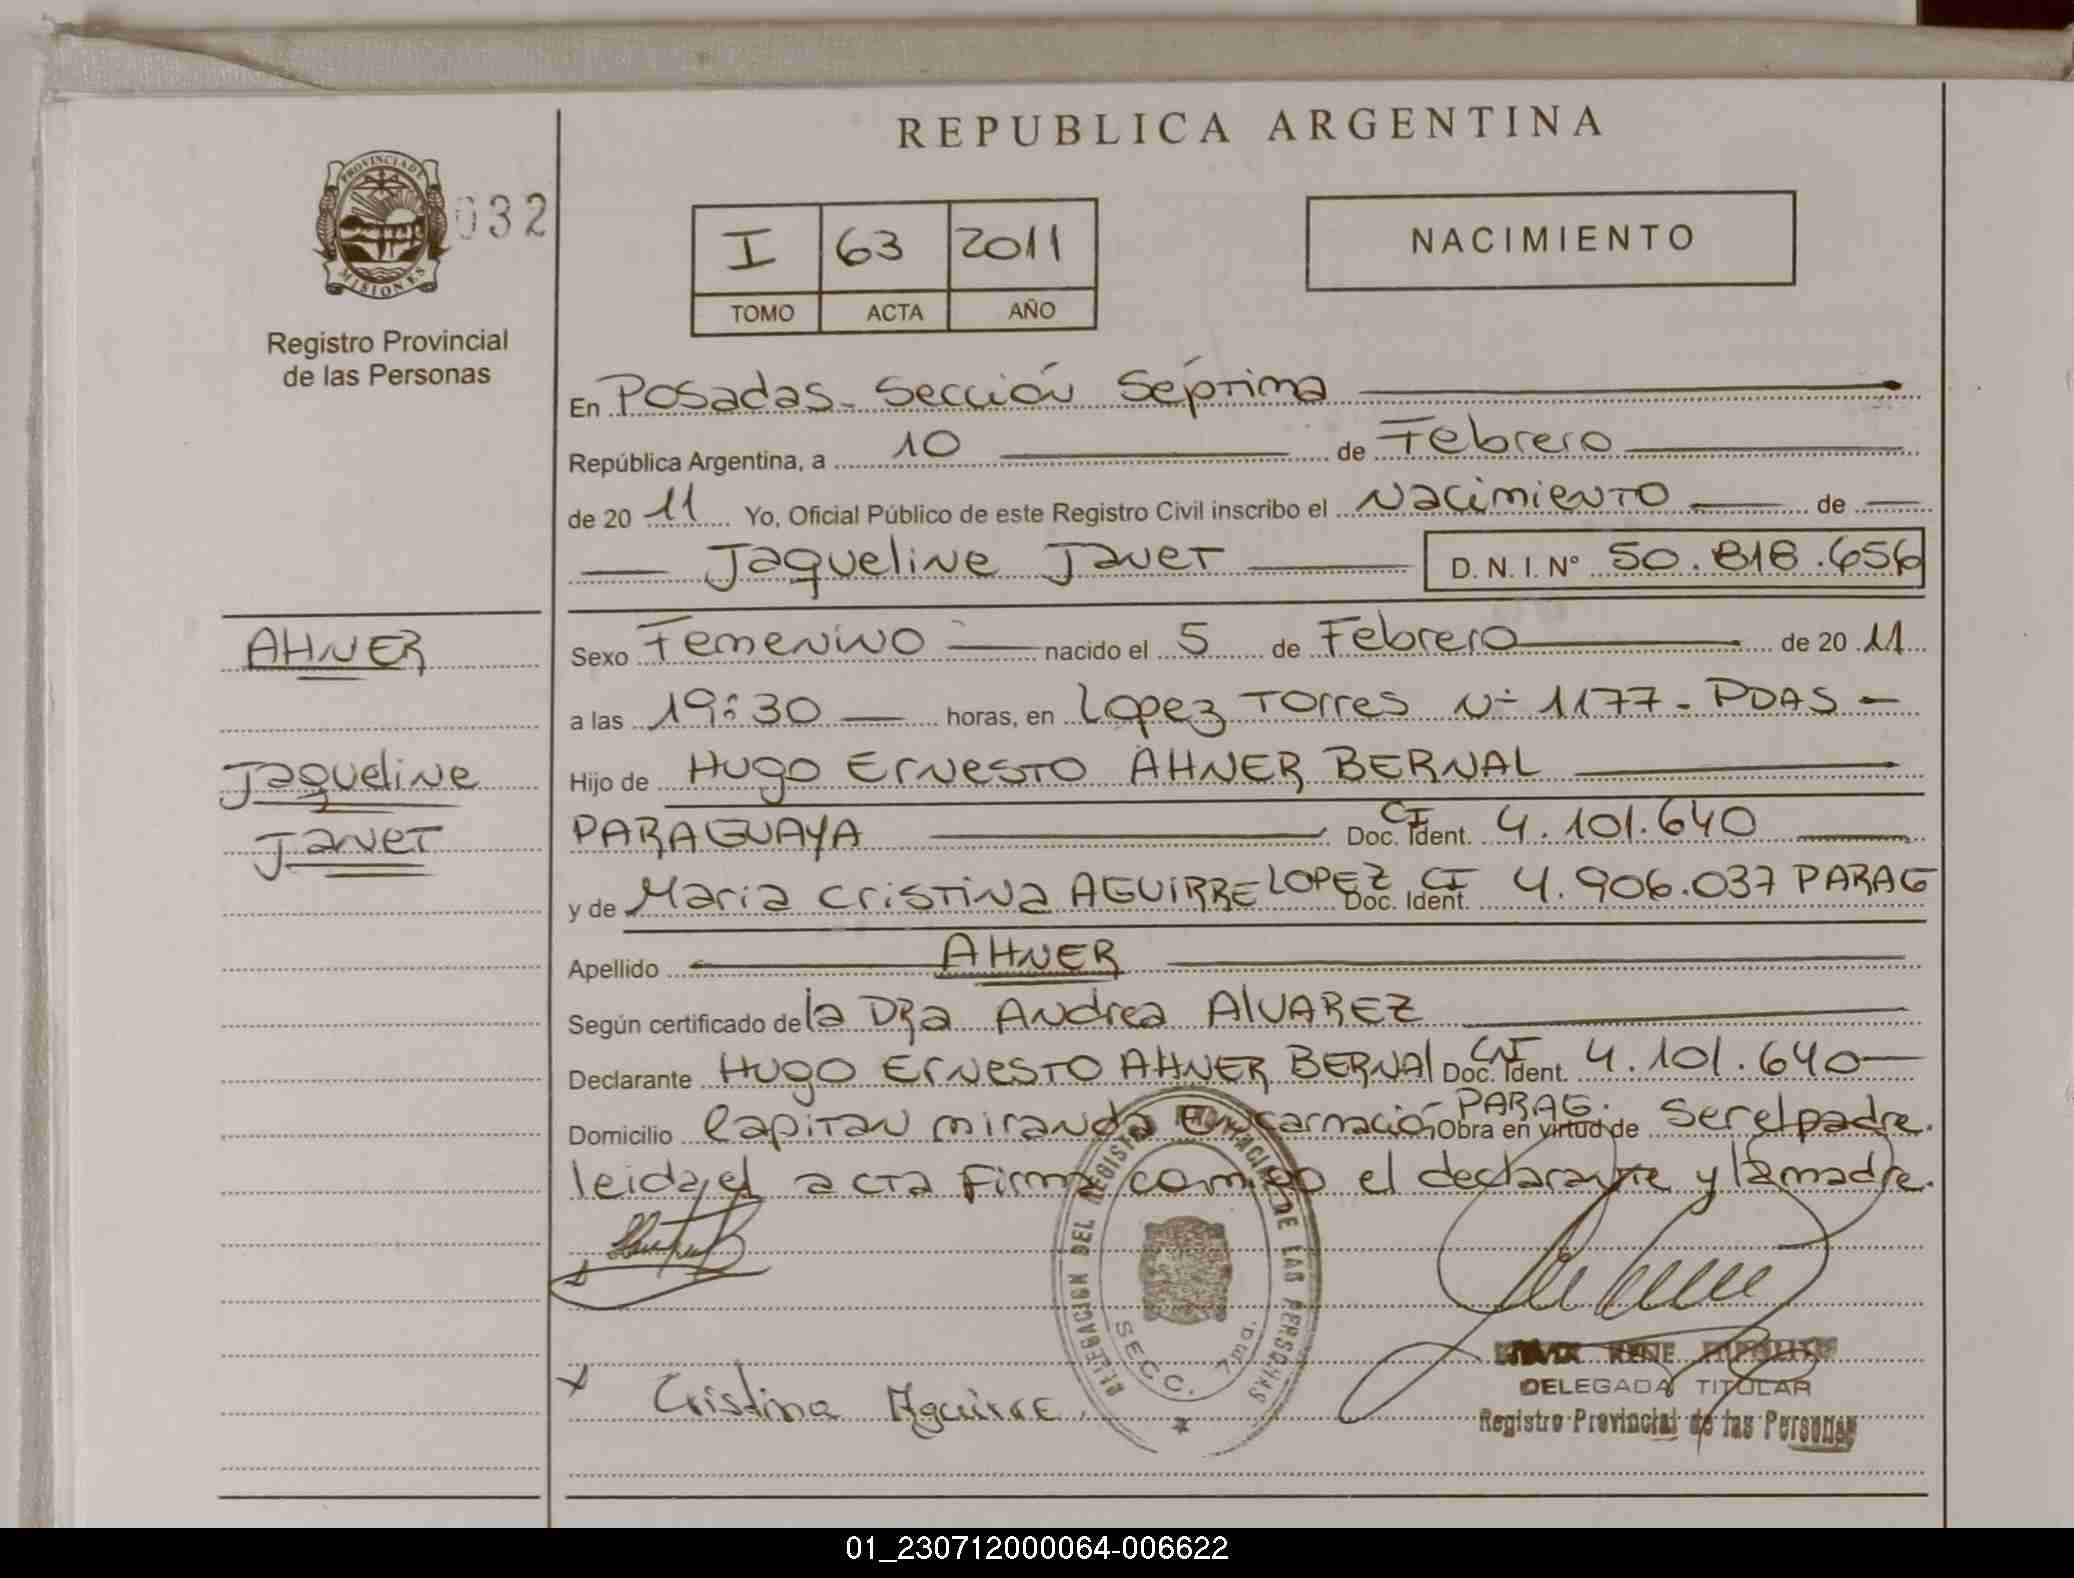 REPUBLICA ARGENTINA
PROVINCIA DE MISIONES
032
Registro Provincial
de las Personas
I 63 2011
TOMO ACTA AÑO
NACIMIENTO
En Posadas - Sección Séptima
República Argentina, a 10 de Febrero
de 20 11 Yo, Oficial Público de este Registro Civil inscribo el Nacimiento de
Jaqueline Janet D. N. I. N° 50.818.656
AHNER
Jaqueline
Janet
Sexo Femenino nacido el 5 de Febrero de 20 11
a las 19:30 horas, en Lopez Torres N° 1177 - PDAS -
Hijo de Hugo Ernesto AHNER BERNAL
PARAGUAYA Doc. Ident. CI 4.101.640
y de Maria Cristina AGUIRRE LOPEZ Doc. Ident. CI 4.906.037 PARAG
Apellido AHNER
Según certificado de la DRa Andrea AlVAREZ
Declarante Hugo Ernesto AHNER BERNAl Doc. Ident. 4.101.640
Domicilio Capitan miranda Encarnación - PARAG. Obra en virtud de ser el padre.
leida el acta firma conmigo el declarante y la madre.
DELEGACION DEL REGISTRO PROVINCIAL DE LAS PERSONAS
SECC. 7ma.
x Cristina Aguirre.
DELEGADA TITULAR
Registro Provincial de las Personas
01_230712000064-006622